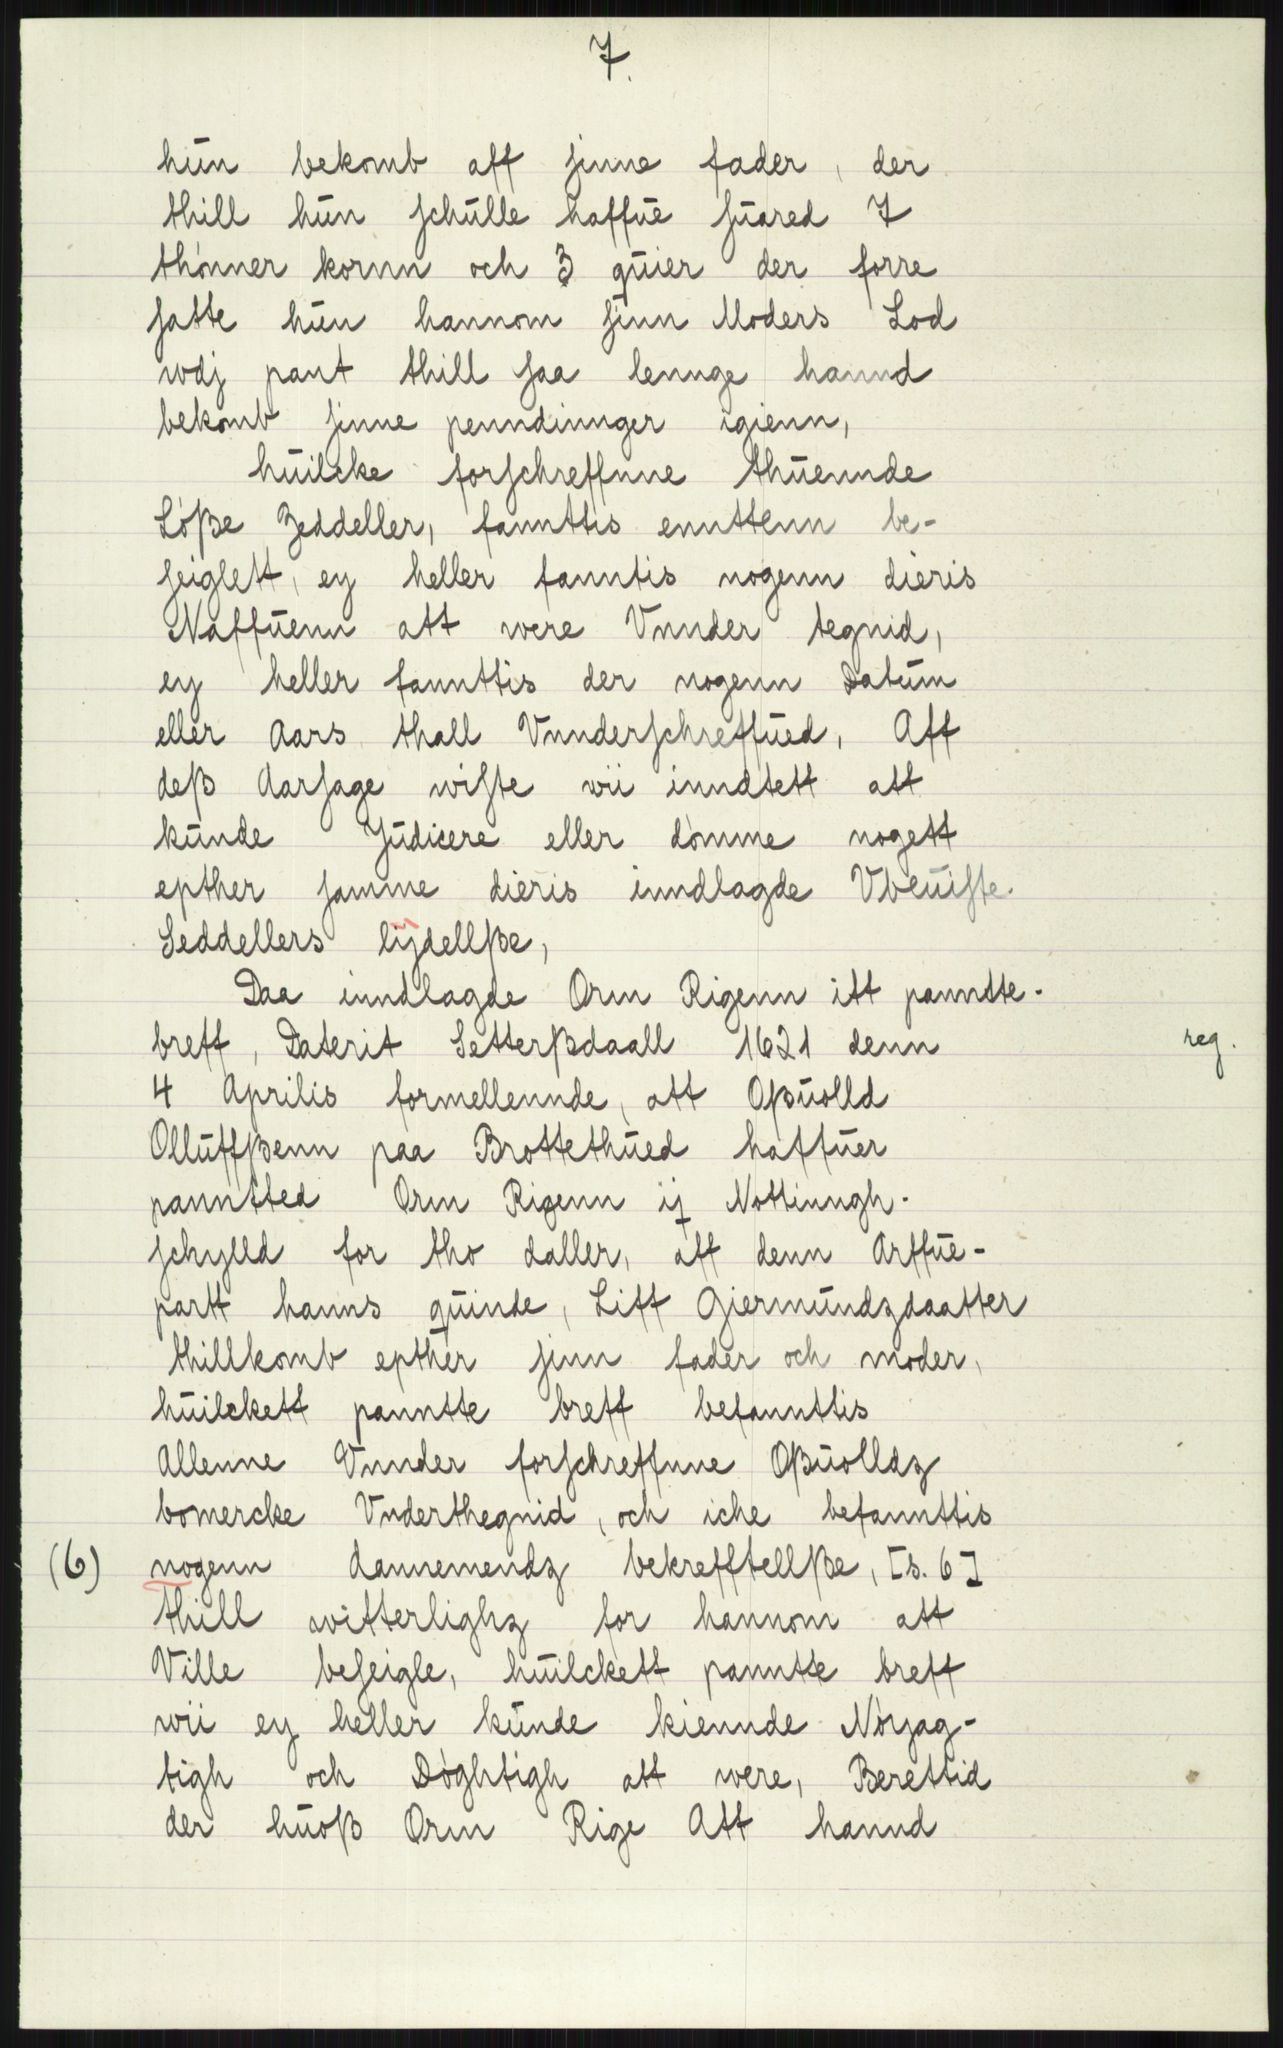 7.
hūn bekomb aff sinne fader, der
thill hūn schūlle haffūe sūared 7
thónner kornn och 3 qūier der forre
satte hūn hannom sinn Moders Lod
wdj pant thill saa lennge hannd
bekomb sinne penndinnger igienn,
hūilcke forschreffnne thūennde
Lóße Zeddeller, fannttis enttenn be-
seiglett, ey heller fanntis nogenn dieris
Naffūenn att were Vnnder tegnid,
ey heller fannttis der nogenn Datūm
eller Aars thall Vnnderschreffūed, Aff
deß Aarsage wiste wii inndtett att
kūnde Jūdicere eller dómme nogett
epther samme dieris inndlagde Vbeūiste
Seddellers lÿdellße,
Daa inndlagde Orm Rigenn itt panntte-
breff, Daterit Setterßdaall 1621 denn
reg.
4 Aprilis formellennde, att Oßūolld
Ollūffßenn paa Brottethūed haffūer
panntted Orm Rigenn ij Nottinngh-
schylld for tho daller, aff denn Arffūe-
partt hanns qūinde, Liff Giermūndzdaatter
thillkomb epther sinn fader och moder,
hūilckett panntte breff befannttis
Allenne Vnnder forschreffnne Oßūolldz
bomercke Vnderthegnid, och iche befannttis
(6) nogenn dannemendz bekrefftellße, [s. 6]
thill witterlighz for hannom att
Ville beseigle, hūilckett panntte breff
wii ey heller kūnde kiennde Nóyag-
tigh och Dóghtigh att were, Berettid
der hūoß Orm Rige Att hannd